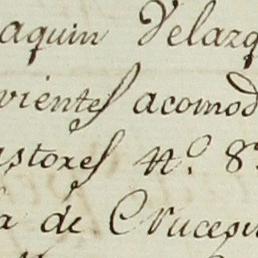 aquin Velazq
vientes acomod
astores n.º 8
a de Crucesi